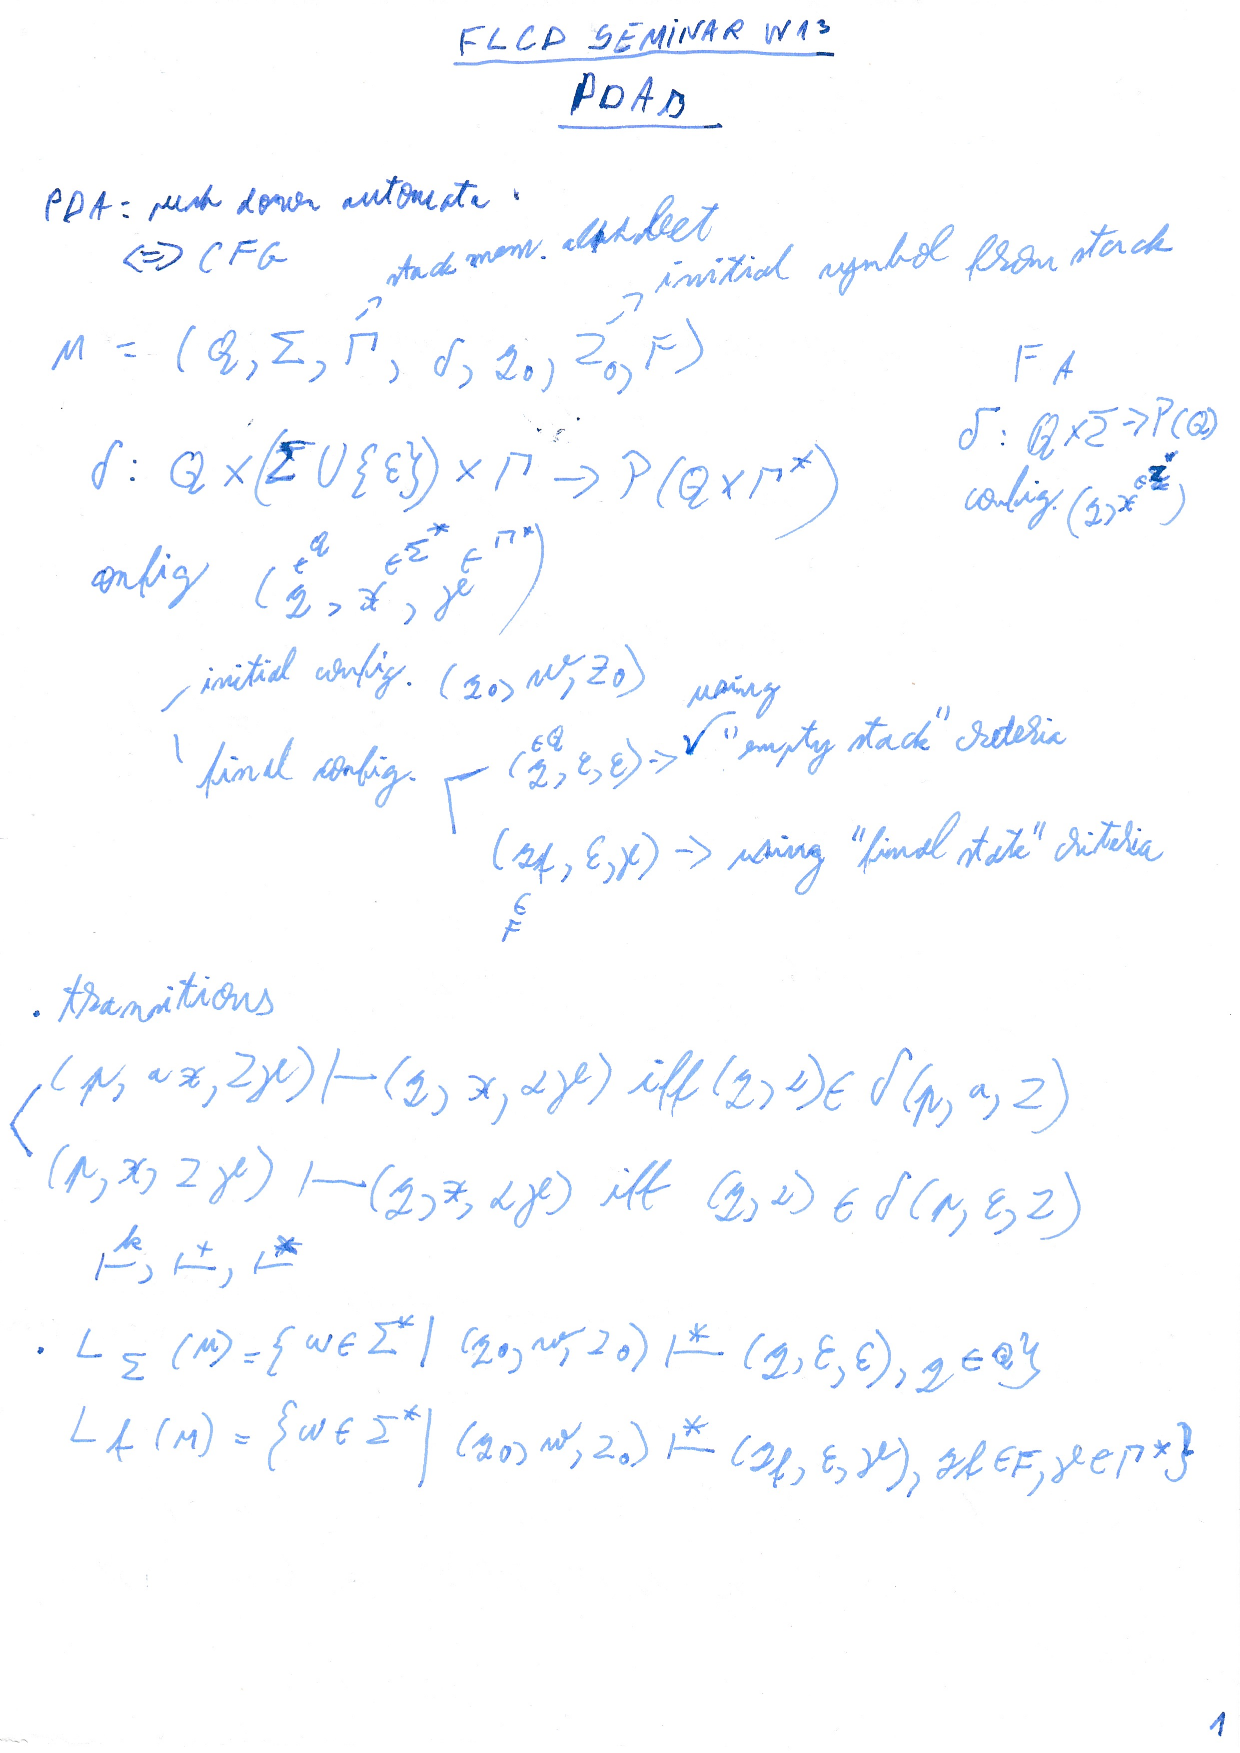 FLCD SEMINAR W13
PDAs
PDA = push down automata.
<=> CFG
stack mem. alphabet
initial symbol from stack
M = (Q, Σ, Γ, δ, q0, Z0, F)
FA
δ: Q × Σ -> P(Q)
config. (q, x ∈ Σ*)
δ: Q × (Σ ∪ {ε}) × Γ -> P(Q × Γ*)
∈ Q ∈ Σ* ∈ Γ*
config (q, x, γ)
initial config. (q0, w, Z0)
final config. (q, ε, ε) -> using "empty stack" criteria
∈ Q
(qf, ε, γ) -> using "final state" criteria
∈
F
. transitions
(p, ax, Zγ) |— (q, x, αγ) iff (q, α) ∈ δ(p, a, Z)
(p, x, Zγ) |— (q, x, αγ) iff (q, α) ∈ δ(p, ε, Z)
|—k, |—+, |—*
. L Σ (M) = {w ∈ Σ* | (q0, w, Z0) |—* (q, ε, ε), q ∈ Q}
L f (M) = {w ∈ Σ* | (q0, w, Z0) |—* (qf, ε, γ), qf ∈ F, γ ∈ Γ*}
1